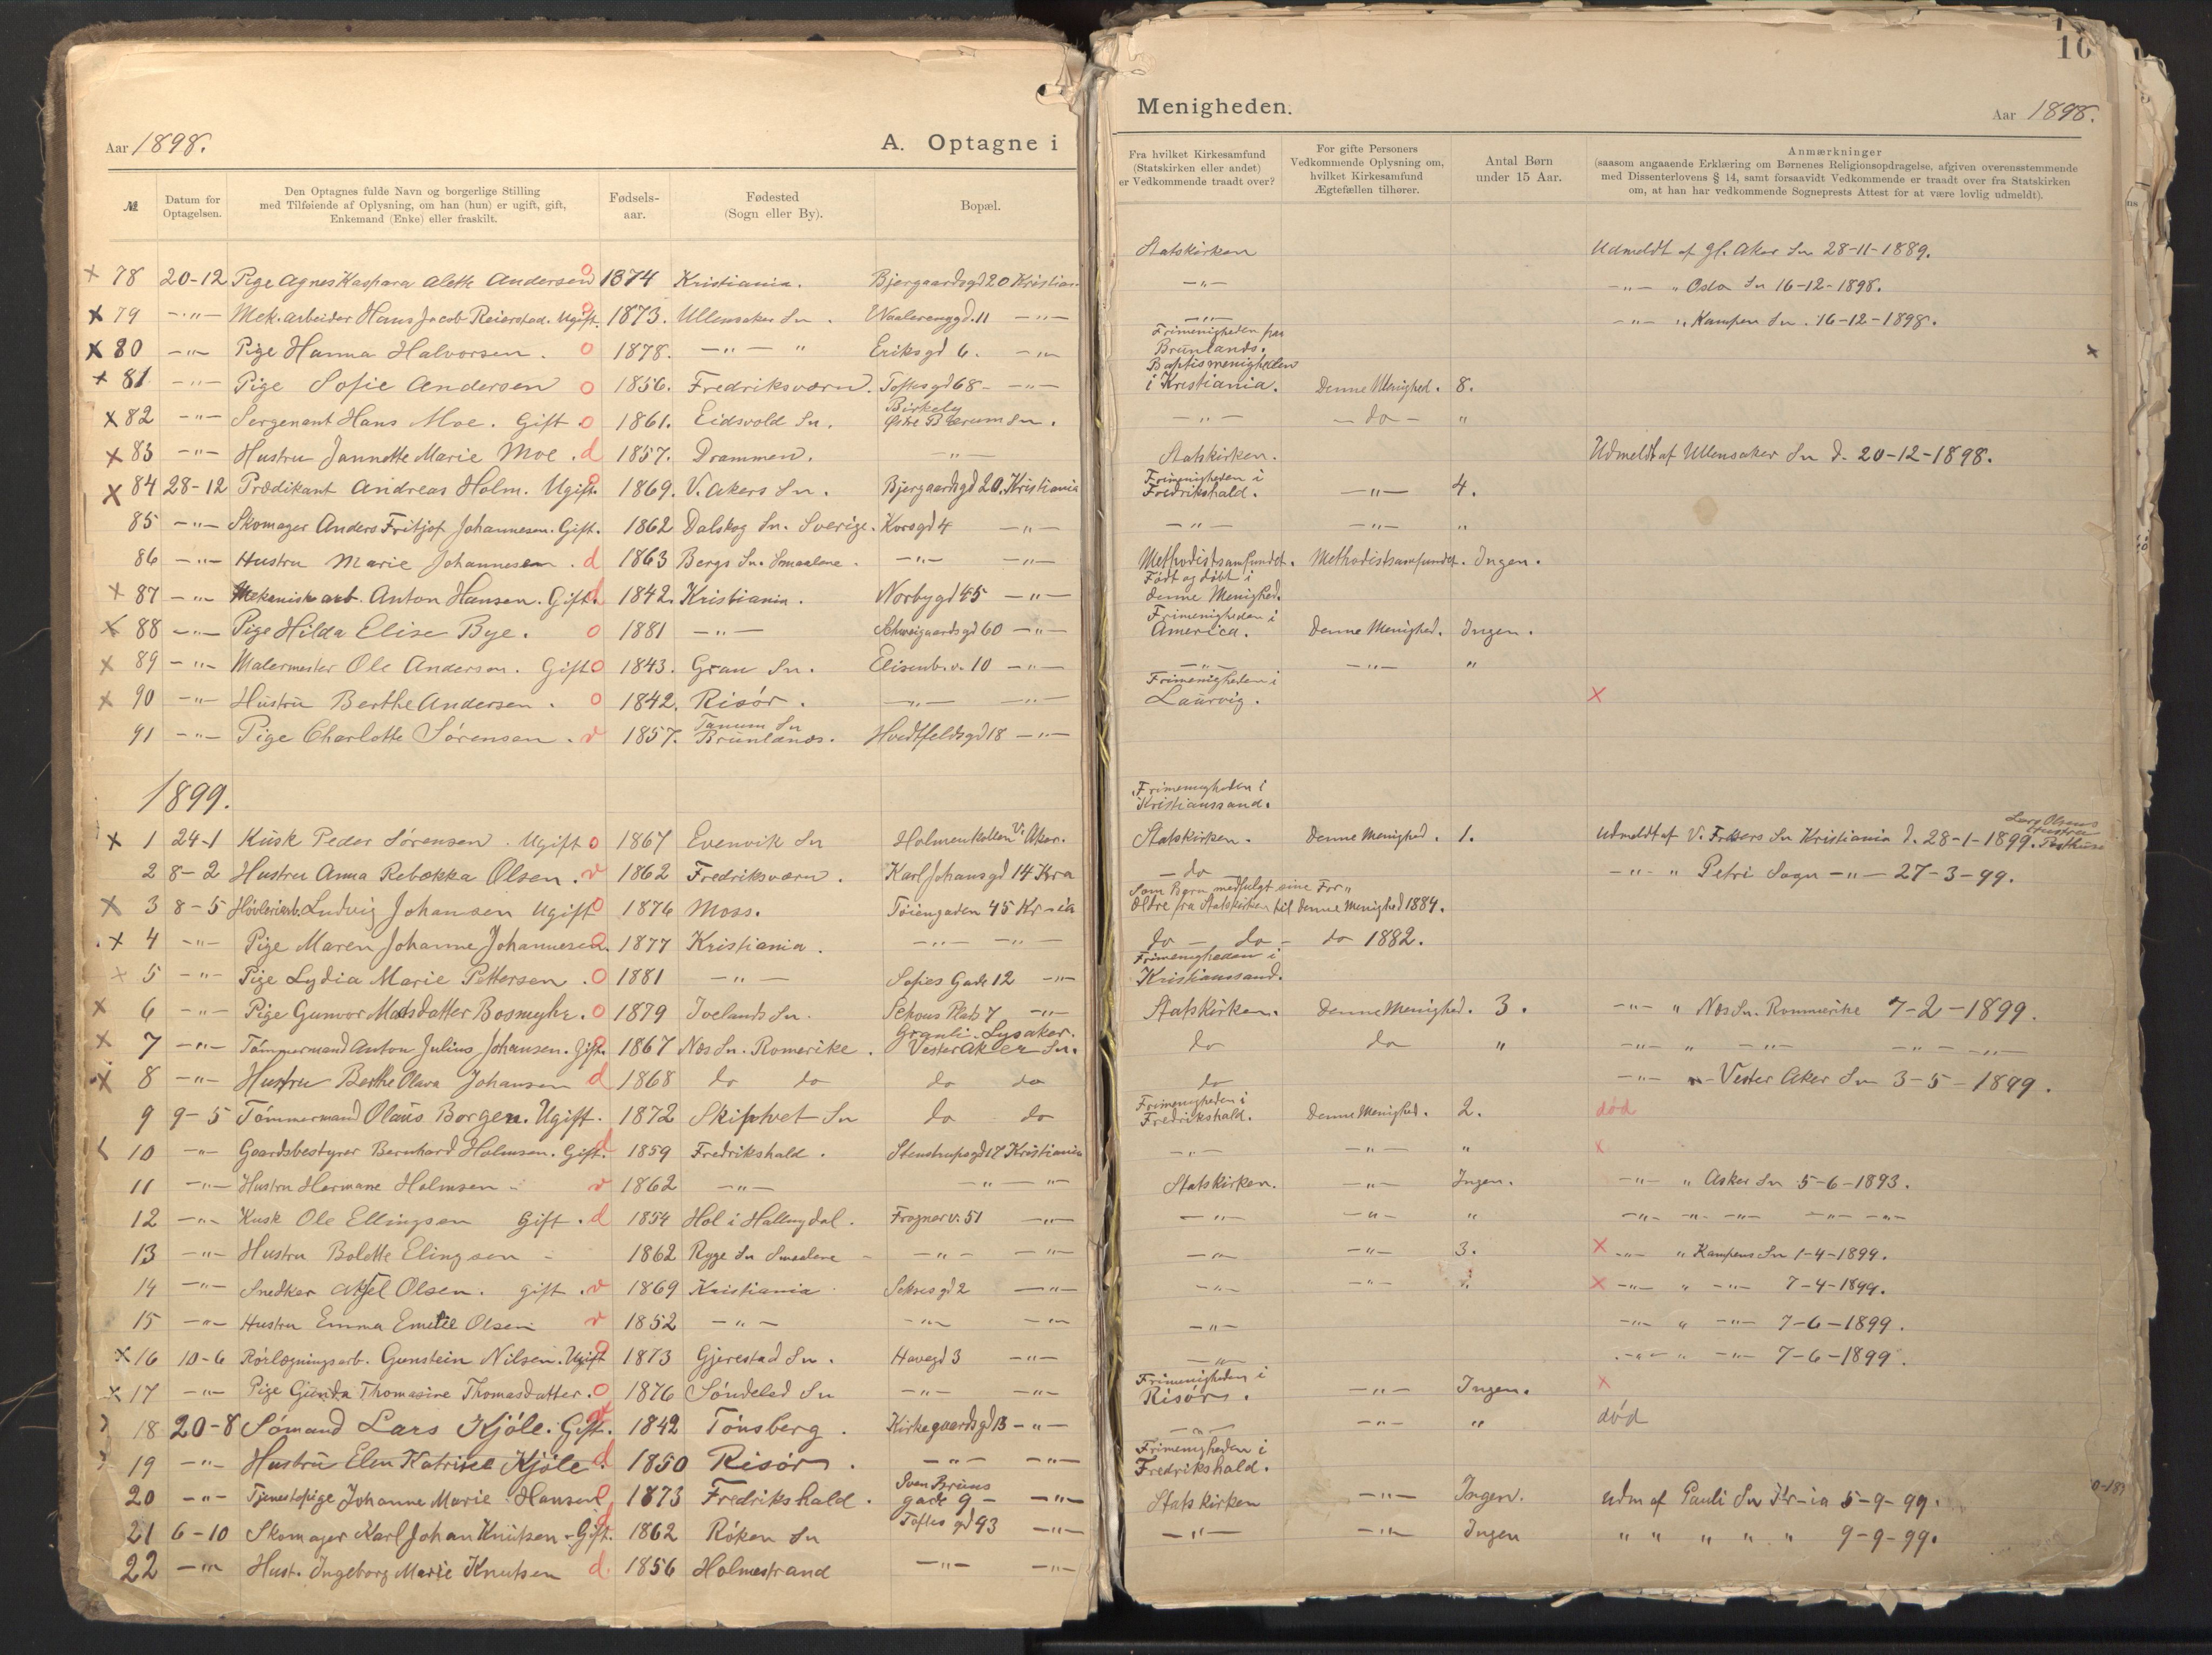 Aar 1898.
A. Optagne i
№
Datum for Optagelsen.
Den Optagnes fulde Navn og borgerlige Stilling
med Tilføiende af Oplysning, om han (hun) er ugift, gift,
Enkemand (Enke) eller fraskilt.
Fødsels-
aar.
Fødested
(Sogn eller By).
Bopæl.
x 78 20-12 Pige Agnes Kaspara Alette Andersen o 1874 Kristiania. Bjergaardsgd 20 Kristian
x 79 -"- Mek. arbeider Hans Jacob Reierstad. Ugift. o 1873. Ullensaker Sn. Waalerenggd. 11 -"-
x 80 -"- Pige Hanna Halvorsen. o 1878. -"- " Eriksgd 6. -"-
x 81 -"- Pige Sofie Andersen o 1856. Fredriksværn. Toftesgd 68 -"-
x 82 -"- Sergenant Hans Moe. Gift. o 1861. Eidsvold Sn. Birkely Østre Bærum Sn.
x 83 -"- Hustru Jannette Marie Moe. d 1857. Drammen. -"-
x 84 28-12 Prædikant Andreas Holm. Ugift. 1869. V. Akers Sn. Bjergaardsgd 20. Kristiania
85 -"- Skomager Anders Fritjof Johannesen. Gift. 1862 Dalskog Sn. Sverige. Korsgd 4 -"-
86 -"- Hustru Marie Johannesen. d 1863 Bergs Sn. Smaalene. -"- -"-
x 87 -"- Mekanisk arb. Anton Hansen. Gift. d 1842. Kristiania. Norbygd 45 -"-
x 88 -"- Pige Hilda Elise Bye. o 1881 -"- Schweigaardsgd 60 -"-
x 89 -"- Malermester Ole Andersen. Gift o 1843. Gran Sn. Elisenb.v. 10 -"-
x 90 -"- Hustru Berthe Andersen. o 1842. Risör. -"- -"-
91 -"- Pige Charlotte Sörensen. v 1857. Tanum Sn Brunlanæs. Hvidtfeldsgd 18 -"-
1899.
x 1 24-1 Kusk Peder Sørensen. Ugift o 1867 Evenvik Sn Holmenkollen V. Aker.
2 8-2 Hustru Anna Rebekka Olsen. v 1862 Fredriksværn. Karl Johansgd 14 Kra
x 3 8-5 Høvleriarb. Ludvig Johansen Ugift o 1876 Moss. Töiengaden 45 Kr-ia
x 4 -"- Pige Maren Johanne Johannesen. 1877 Kristiania. -"- -"-
x 5 -"- Pige Lydia Marie Pettersen. o 1881 -"- Sofies Gade 12 -"-
x 6 -"- Pige Gunvor Madsdatter Bosmyhr. o 1879 Ivelands Sn. Schous Plads 7 -"-
x 7 -"- Tömmermand Anton Julius Johansen. Gift. 1867 Næs Sn. Romerike. Granli. Lysaker. Vester Aker Sn.
x 8 -"- Hustru Berthe Olava Johansen d 1868 do do do do
9 9-5 Tömmermand Olaus Borgen. Ugift. 1872 Skiptvet Sn do do
10 -"- Gaardsbestyrer Bernhard Holmsen. Gift. d 1859 Fredrikshald. Stenstrupsgd 17 Kristiania
11 -"- Hustru Hermane Holmsen v 1862 -"- -"- -"-
12 -"- Kusk Ole Ellingsen Gift. d 1854 Hol i Hallingdal. Frognerv. 51 -"-
13 -"- Hustru Bolette Elingsen 1862 Rygge Sn Smaalene -"- -"-
14 -"- Snedker Aksel Olsen. gift. v 1869 Kristiania Seksesgd 2 -"-
15 -"- Hustru Emma Emelie Olsen v 1852 -"- -"- -"-
x 16 10-6 Rörlægningsarb. Gunstein Nilsen. Ugift 1873 Gjerestad Sn. Havegd 3 -"-
x 17 -"- Pige Gunda Thomasine Thomasdatter. o 1876 Söndeled Sn -"- -"-
18 20-8 Sömand Lars Kjöle. Gift. 1842 Tönsberg. Kirkegaardsgd 13 -"-
19 -"- Hustru Elen Katrine Kjöle. d 1850 Risör. -"- -"-
20 -"- Tjenestepige Johanne Marie Hansen o 1873 Fredrikshald. Sven Bruns gade 9 -"-
21 6-10 Skomager Karl Johan Knutsen. Gift. 1862 Röken Sn Toftes gd 93 -"-
22 -"- Hust. Ingeborg Marie Knutsen d. 1856 Holmestrand -"- -"-
10
Menigheden.
Aar 1898.
Fra hvilket Kirkesamfund
(Statskirken eller andet)
er Vedkommende traadt over?
For gifte Personers
Vedkommende Oplysning om,
hvilket Kirkesamfund
Ægtefællen tilhører.
Antal Børn
under 15 Aar.
Anmærkninger
(saasom angaaende Erklæring om Børnenes Religionsopdragelse, afgiven overensstemmende
med Dissenterlovens § 14, samt forsaavidt Vedkommende er traadt over fra Statskirken
om, at han har vedkommende Sogneprests Attest for at være lovlig udmeldt).
Statskirken Udmeldt af Gl. Aker Sn 28-11-1889.
-"- -"- " Oslo Sn 16-12-1898.
-"- -"- " Kampen Sn. 16-12-1898.
Frimenigheden fra
Brunlands. x
Baptismenigheden
i Kristiania. Denne Menighed. 8.
-"- -do- "
Statskirken. Udmeldt af Ullensaker Sn d. 20-12-1898.
Frimenigheden i
Fredrikshald. -"- 4.
-"- -"- "
Methodistsamfundet. Methodistsamfundet. Ingen.
Født og døbt i
denne Menighed.
Frimenigheden i
America. Denne Menighed. Ingen.
-"- -"- "
Frimenigheden i
Laurvig. x
Frimenigheden i
Kristianssand.
Lars Olsens
Hustru
Statskirken. Denne Menighed. 1. Udmeldt af V. Frelsers Sn Kristiania d. 28-1-1899.
- do -"- " Petri Sogn -"- 27-3-99.
Som Barn medfulgt sine For"
ældre fra Statskirken til denne Menighed 1884.
do - do - do 1882.
Frimenigheden i
Kristianssand.
Statskirken. Denne Menighed. 3. -"- " Næs Sn. Rommerike 7-2-1899.
do do " -"- " -"- -"- -"-
do -"- " Vester Aker Sn 3-5-1899.
Frimenigheden i
Fredrikshald. Denne Menighed. 2. død
-"- -"- " x
Statskirken. -"- Ingen. -"- " Asker Sn 5-6-1893.
-"- -"- " -"- -"- -"- -"- -"-
-"- -"- 3. x -"- " Kampens Sn 1-4-1899.
-"- -"- " x -"- " -"- 7-4-1899.
-"- -"- " -"- 7-6-1899.
-"- -"- " -"- 7-6-1899.
Frimenigheden i
Risör. -"- Ingen. x
-"- -"- " død
Frimenigheden i
Fredrikshald.
Statskirken -"- Ingen. Udm af Pauli Sn Kr-ia 5-9-99.
-"- -"- Ingen " " " " " 9-9-99.